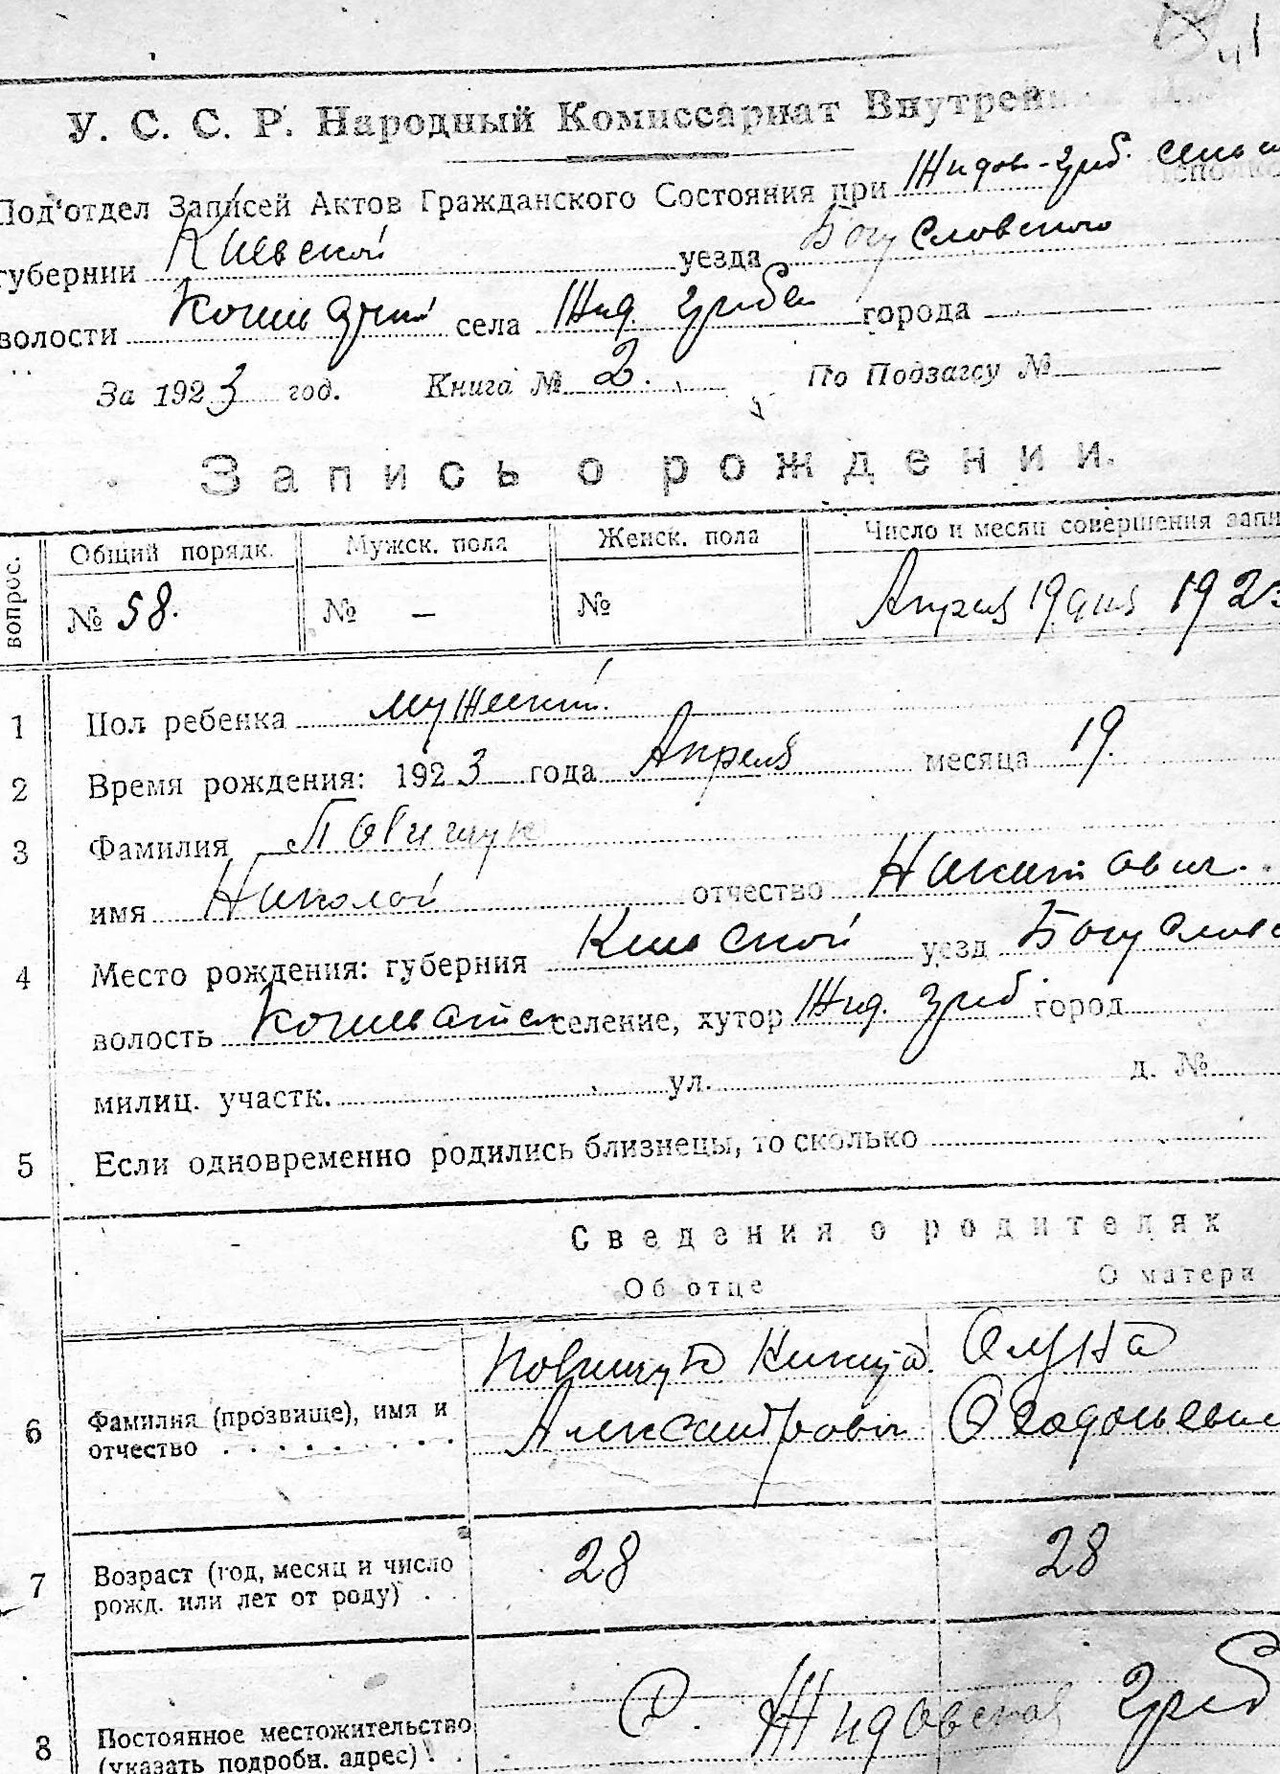 У. С. С. Р. Народный Комиссариат Внутрен
Под'отдел Записей Актов Гражданского Состояния при Жидов-греб. сель
губернии Киевской уезда Богуславского
волости села Жид. Греби города
За 1923 год. Книга № 2. По Подзагсу №
Запись о рождении.
вопрос. Общий порядк. Мужск. пола Женск. пола Число и месяц совершения запи
№ 58. № — № Апреля 19 дня 1923
1 Пол ребенка мужской
2 Время рождения: 1923 года Апреля месяца 19.
3 Фамилия Повищук
имя Николай отчество Никитович.
4 Место рождения: губерния Киевской уезд Богуславс
волость селение, хутор Жид. Греб. город
милиц. участк. ул. д. №
5 Если одновременно родились близнецы, то сколько
Сведения о родителях
Об отце О матери
Повищук Никита
6 Фамилия (прозвище), имя и
отчество Александрович
7 Возраст (год, месяц и число
рожд. или лет от роду) 28 28
8 Постоянное местожительство
(указать подробн. адрес) С. Жидовская Греб